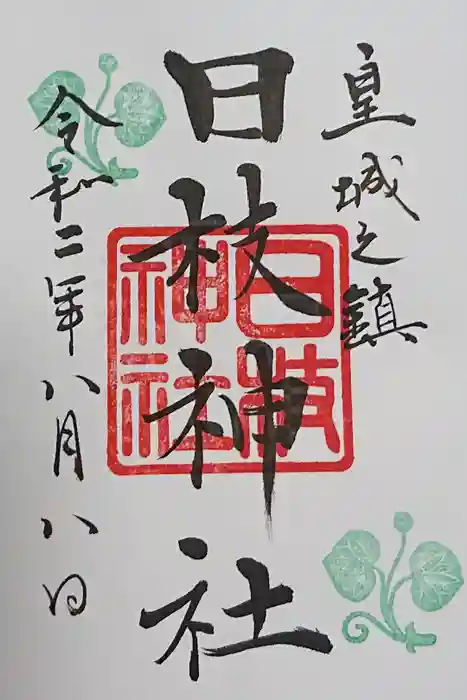 皇城之鎮
日枝神社
日枝
神社
令和二年八月八日